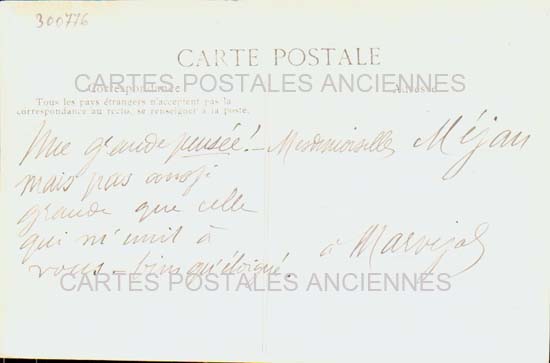 300776
CARTE POSTALE
CARTES POSTALES ANCIENNES
Correspondance
Adresse
Tous les pays étrangers n'acceptent pas la
correspondance au recto, se renseigner à la poste.
Une grande pensée! - Mesdemoiselles Méjan
mais pas aussi
grande que celle
qui m'unit à
vous - bien qu'éloigné.
à Marvejols
CARTES POSTALES ANCIENNES